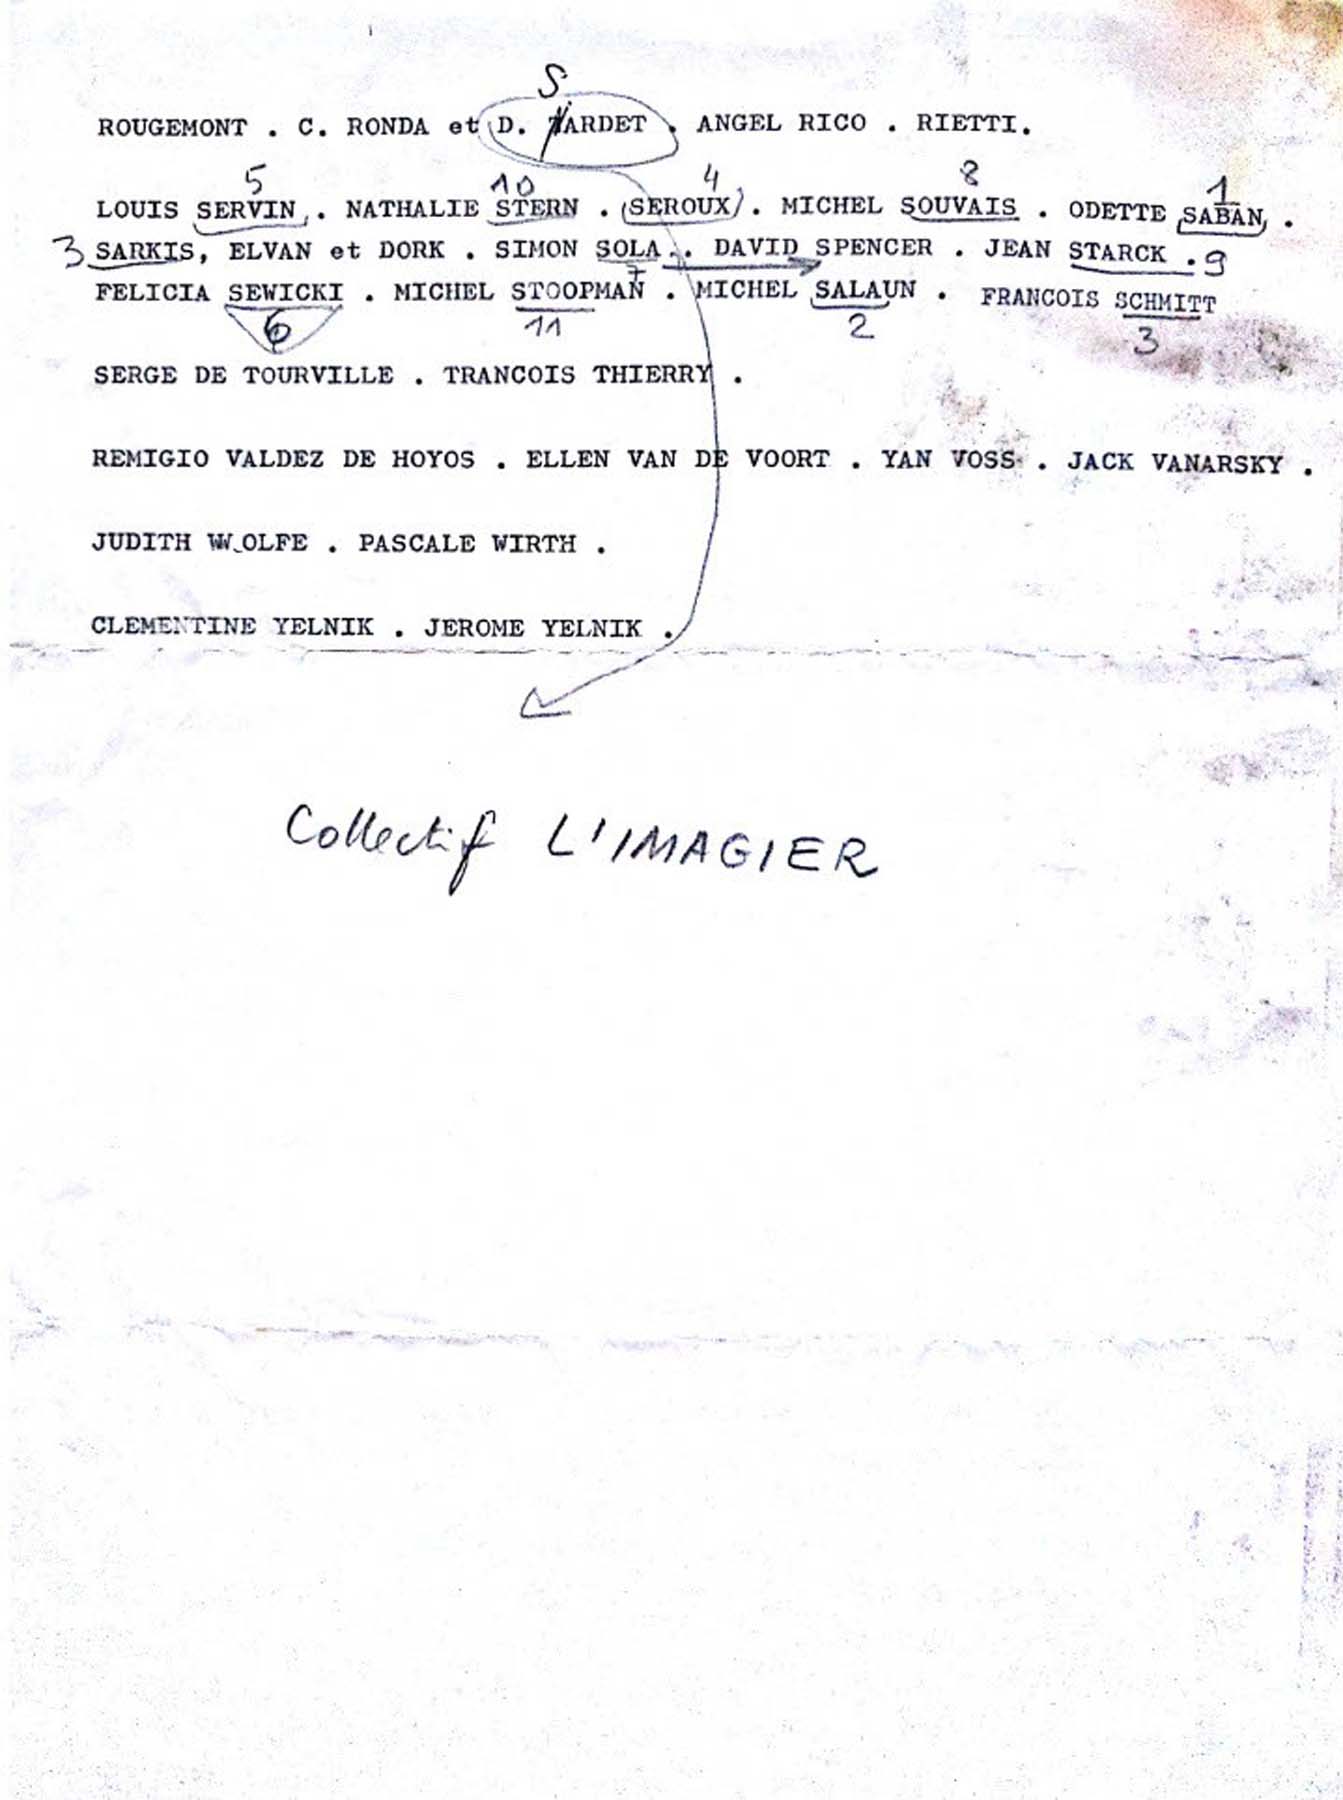 S
ROUGEMONT . C. RONDA et D. TARDET . ANGEL RICO . RIETTI.
5 10 4 8 1
LOUIS SERVIN . NATHALIE STERN . (SEROUX) . MICHEL SOUVAIS . ODETTE SABAN .
3 SARKIS, ELVAN et DORK . SIMON SOLA . DAVID SPENCER . JEAN STARCK . 9
7
FELICIA SEWICKI . MICHEL STOOPMAN . MICHEL SALAUN . FRANCOIS SCHMITT
6 11 2 3
SERGE DE TOURVILLE . TRANCOIS THIERRY .
REMIGIO VALDEZ DE HOYOS . ELLEN VAN DE VOORT . YAN VOSS . JACK VANARSKY .
JUDITH WOLFE . PASCALE WIRTH .
CLEMENTINE YELNIK . JEROME YELNIK .
Collectif L'IMAGIER